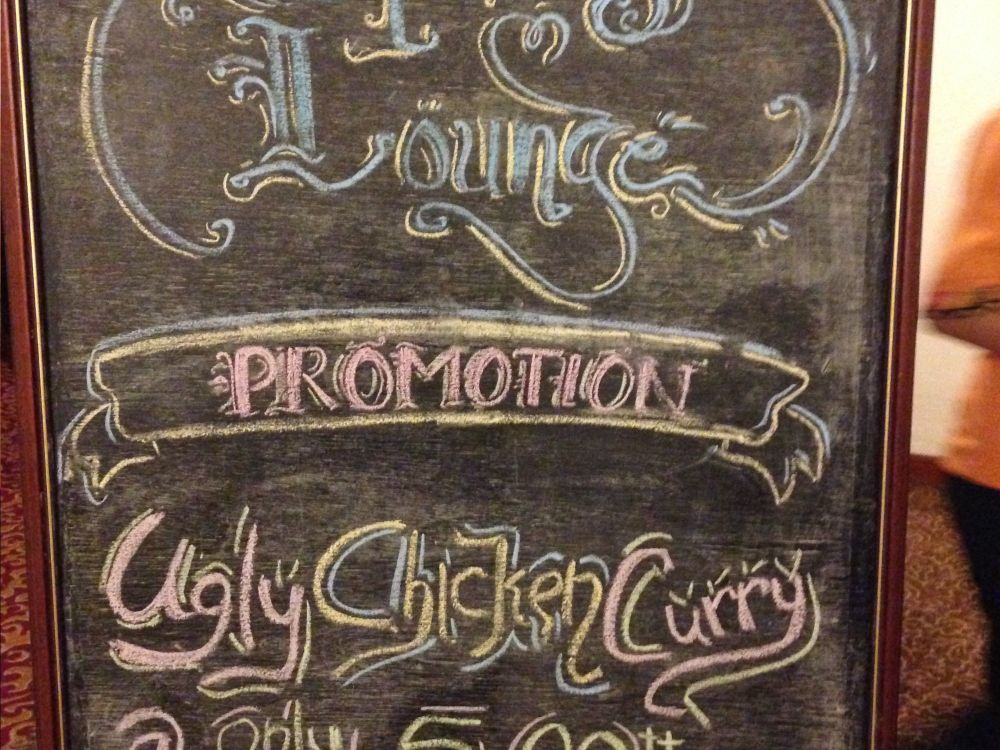 Lounge
PROMOTION
Ugly Chicken Curry
@ Only 5.00++